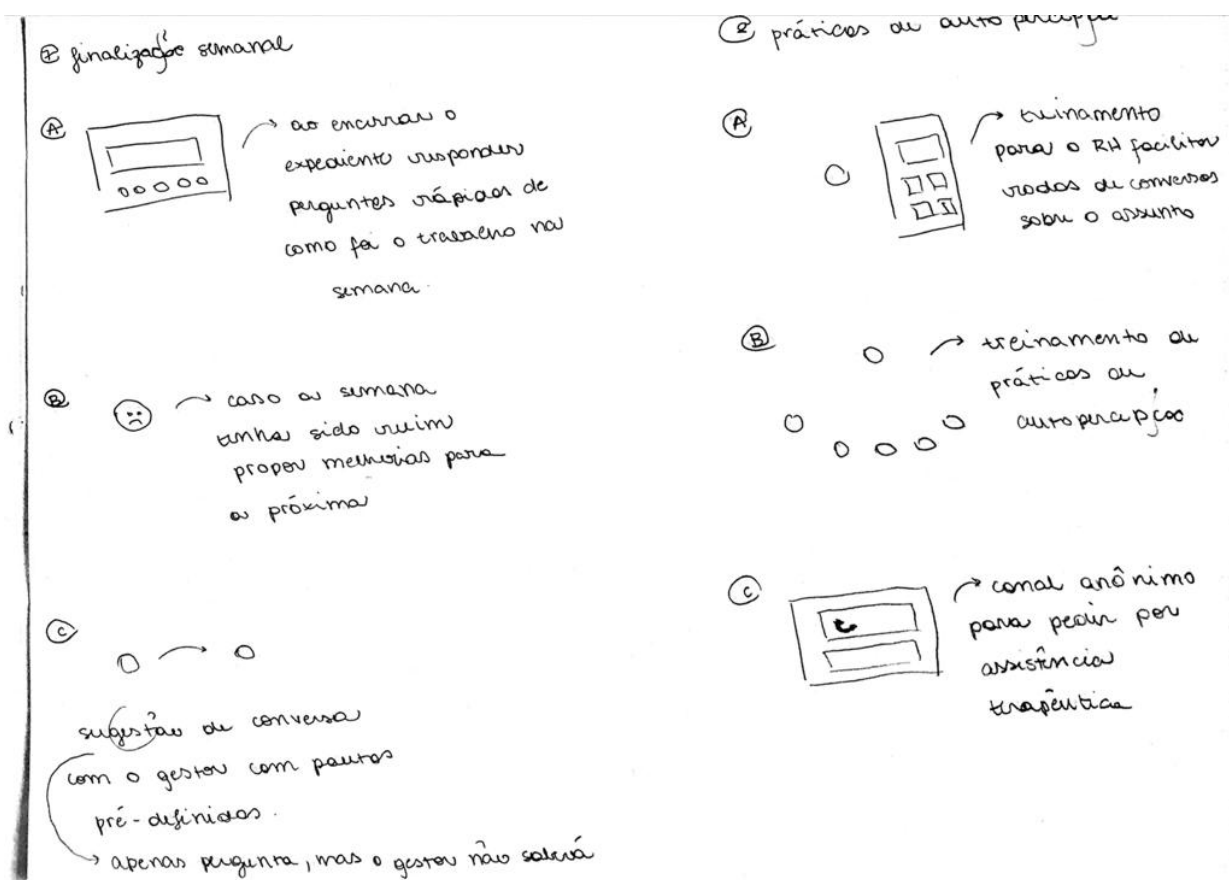 ⑦ finalização semanal
Ⓐ
→ ao encerrar o
expediente responder
perguntas rápidas de
como foi o trabalho na
semana.
Ⓑ
→ caso a semana
tenha sido ruim
propor melhorias para
a próxima
Ⓒ
sugestão de conversa
com o gestor com pautas
pré-definidas.
→ apenas pergunta, mas o gestor não saberá
⑧ práticas de auto percepção
Ⓐ
→ treinamento
para o RH facilitar
rodas de conversas
sobre o assunto
Ⓑ
→ treinamento de
práticas de
autopercepção
Ⓒ
→ canal anônimo
para pedir por
assistência
terapêutica